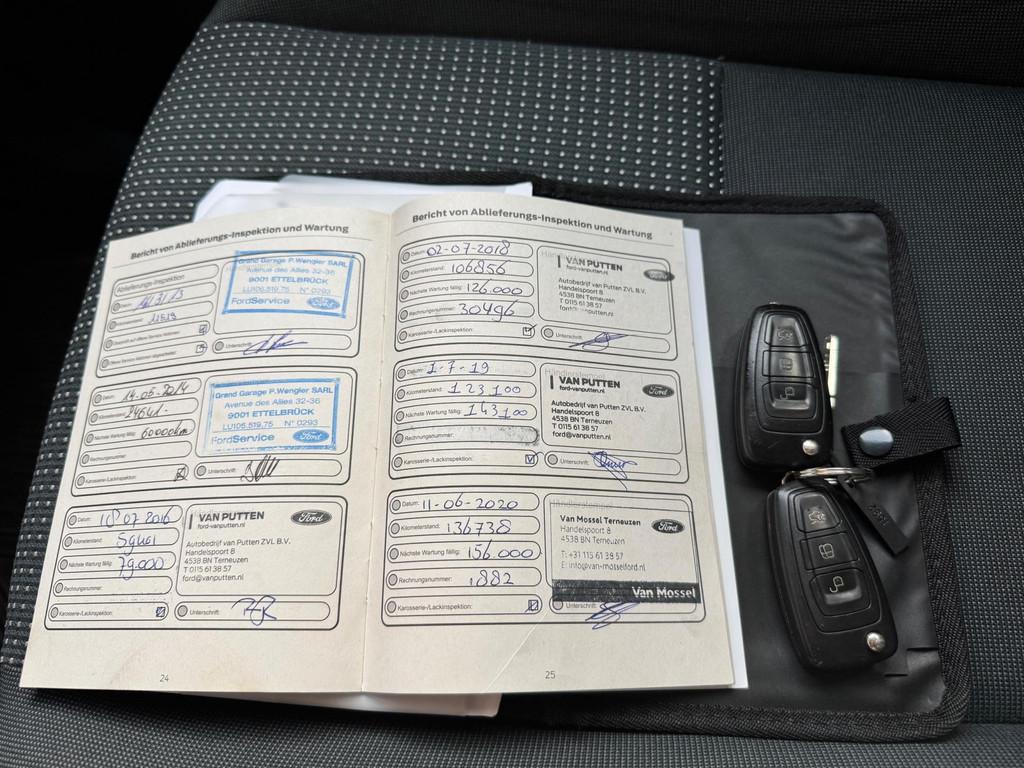 Bericht von Ablieferungs-Inspektion und Wartung
Ablieferungs-Inspektion
Grand Garage P.Wengler SARL
Avenue des Alliés 32-36
9001 ETTELBRÜCK
LU106.519.75 N° 0293
FordService Ford
Unterschrift:
Datum: 14-06-2014
Kilometerstand:
Nächste Wartung fällig: 60000km
Rechnungsnummer:
Karosserie-/Lackinspektion:
Grand Garage P.Wengler SARL
Avenue des Alliés 32-36
9001 ETTELBRÜCK
LU106.519.75 N° 0293
FordService Ford
Unterschrift:
Datum: 07 2016
Kilometerstand:
Nächste Wartung fällig: 79000
Rechnungsnummer:
Karosserie-/Lackinspektion:
VAN PUTTEN
ford-vanputten.nl
Ford
Autobedrijf van Putten ZVL B.V.
Handelspoort 8
4538 BN Terneuzen
T 0115 61 38 57
ford@vanputten.nl
Unterschrift:
24
Bericht von Ablieferungs-Inspektion und Wartung
Datum: 02-07-2018
Kilometerstand: 106856
Nächste Wartung fällig: 126.000
Rechnungsnummer: 30496
Karosserie-/Lackinspektion:
VAN PUTTEN
ford-vanputten.nl
Ford
Autobedrijf van Putten ZVL B.V.
Handelspoort 8
4538 BN Terneuzen
T 0115 61 38 57
ford@vanputten.nl
Unterschrift:
Datum: 1-7-19
Kilometerstand: 123100
Nächste Wartung fällig: 143100
Rechnungsnummer:
Karosserie-/Lackinspektion:
Händlerstempel
VAN PUTTEN
ford-vanputten.nl
Ford
Autobedrijf van Putten ZVL B.V.
Handelspoort 8
4538 BN Terneuzen
T 0115 61 38 57
ford@vanputten.nl
Unterschrift:
Datum: 11-06-2020
Kilometerstand: 136738
Nächste Wartung fällig: 156.000
Rechnungsnummer: 1882
Karosserie-/Lackinspektion:
Händlerstempel
Van Mossel Terneuzen
Handelspoort 8
4538 BN Terneuzen
Ford
T: +31 115 61 38 57
E: info@van-mosselford.nl
Van Mossel
Unterschrift:
25